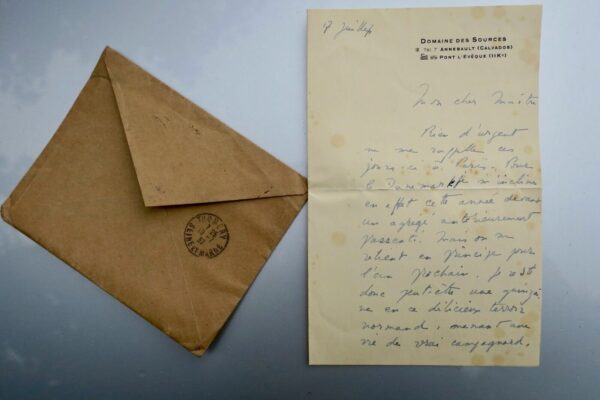 7 Juillet
DOMAINE DES SOURCES
TEL 7 ANNEBAULT (CALVADOS)
PONT L'ÉVÊQUE (11 K.)
Mon cher Maître
Rien d'urgent
ne me rappelle ces
jours-ci à Paris. Pour
le Danemark on s'incline
en effet cette année devant
un agrégé antérieurement
pressenti. Mais on me
retient en principe pour
l'an prochain. Je reste
donc peut-être une quinzai-
ne en ce délicieux terroir
normand, menant une
vie de vrai campagnard.
THOMERY
SEINE ET MARNE